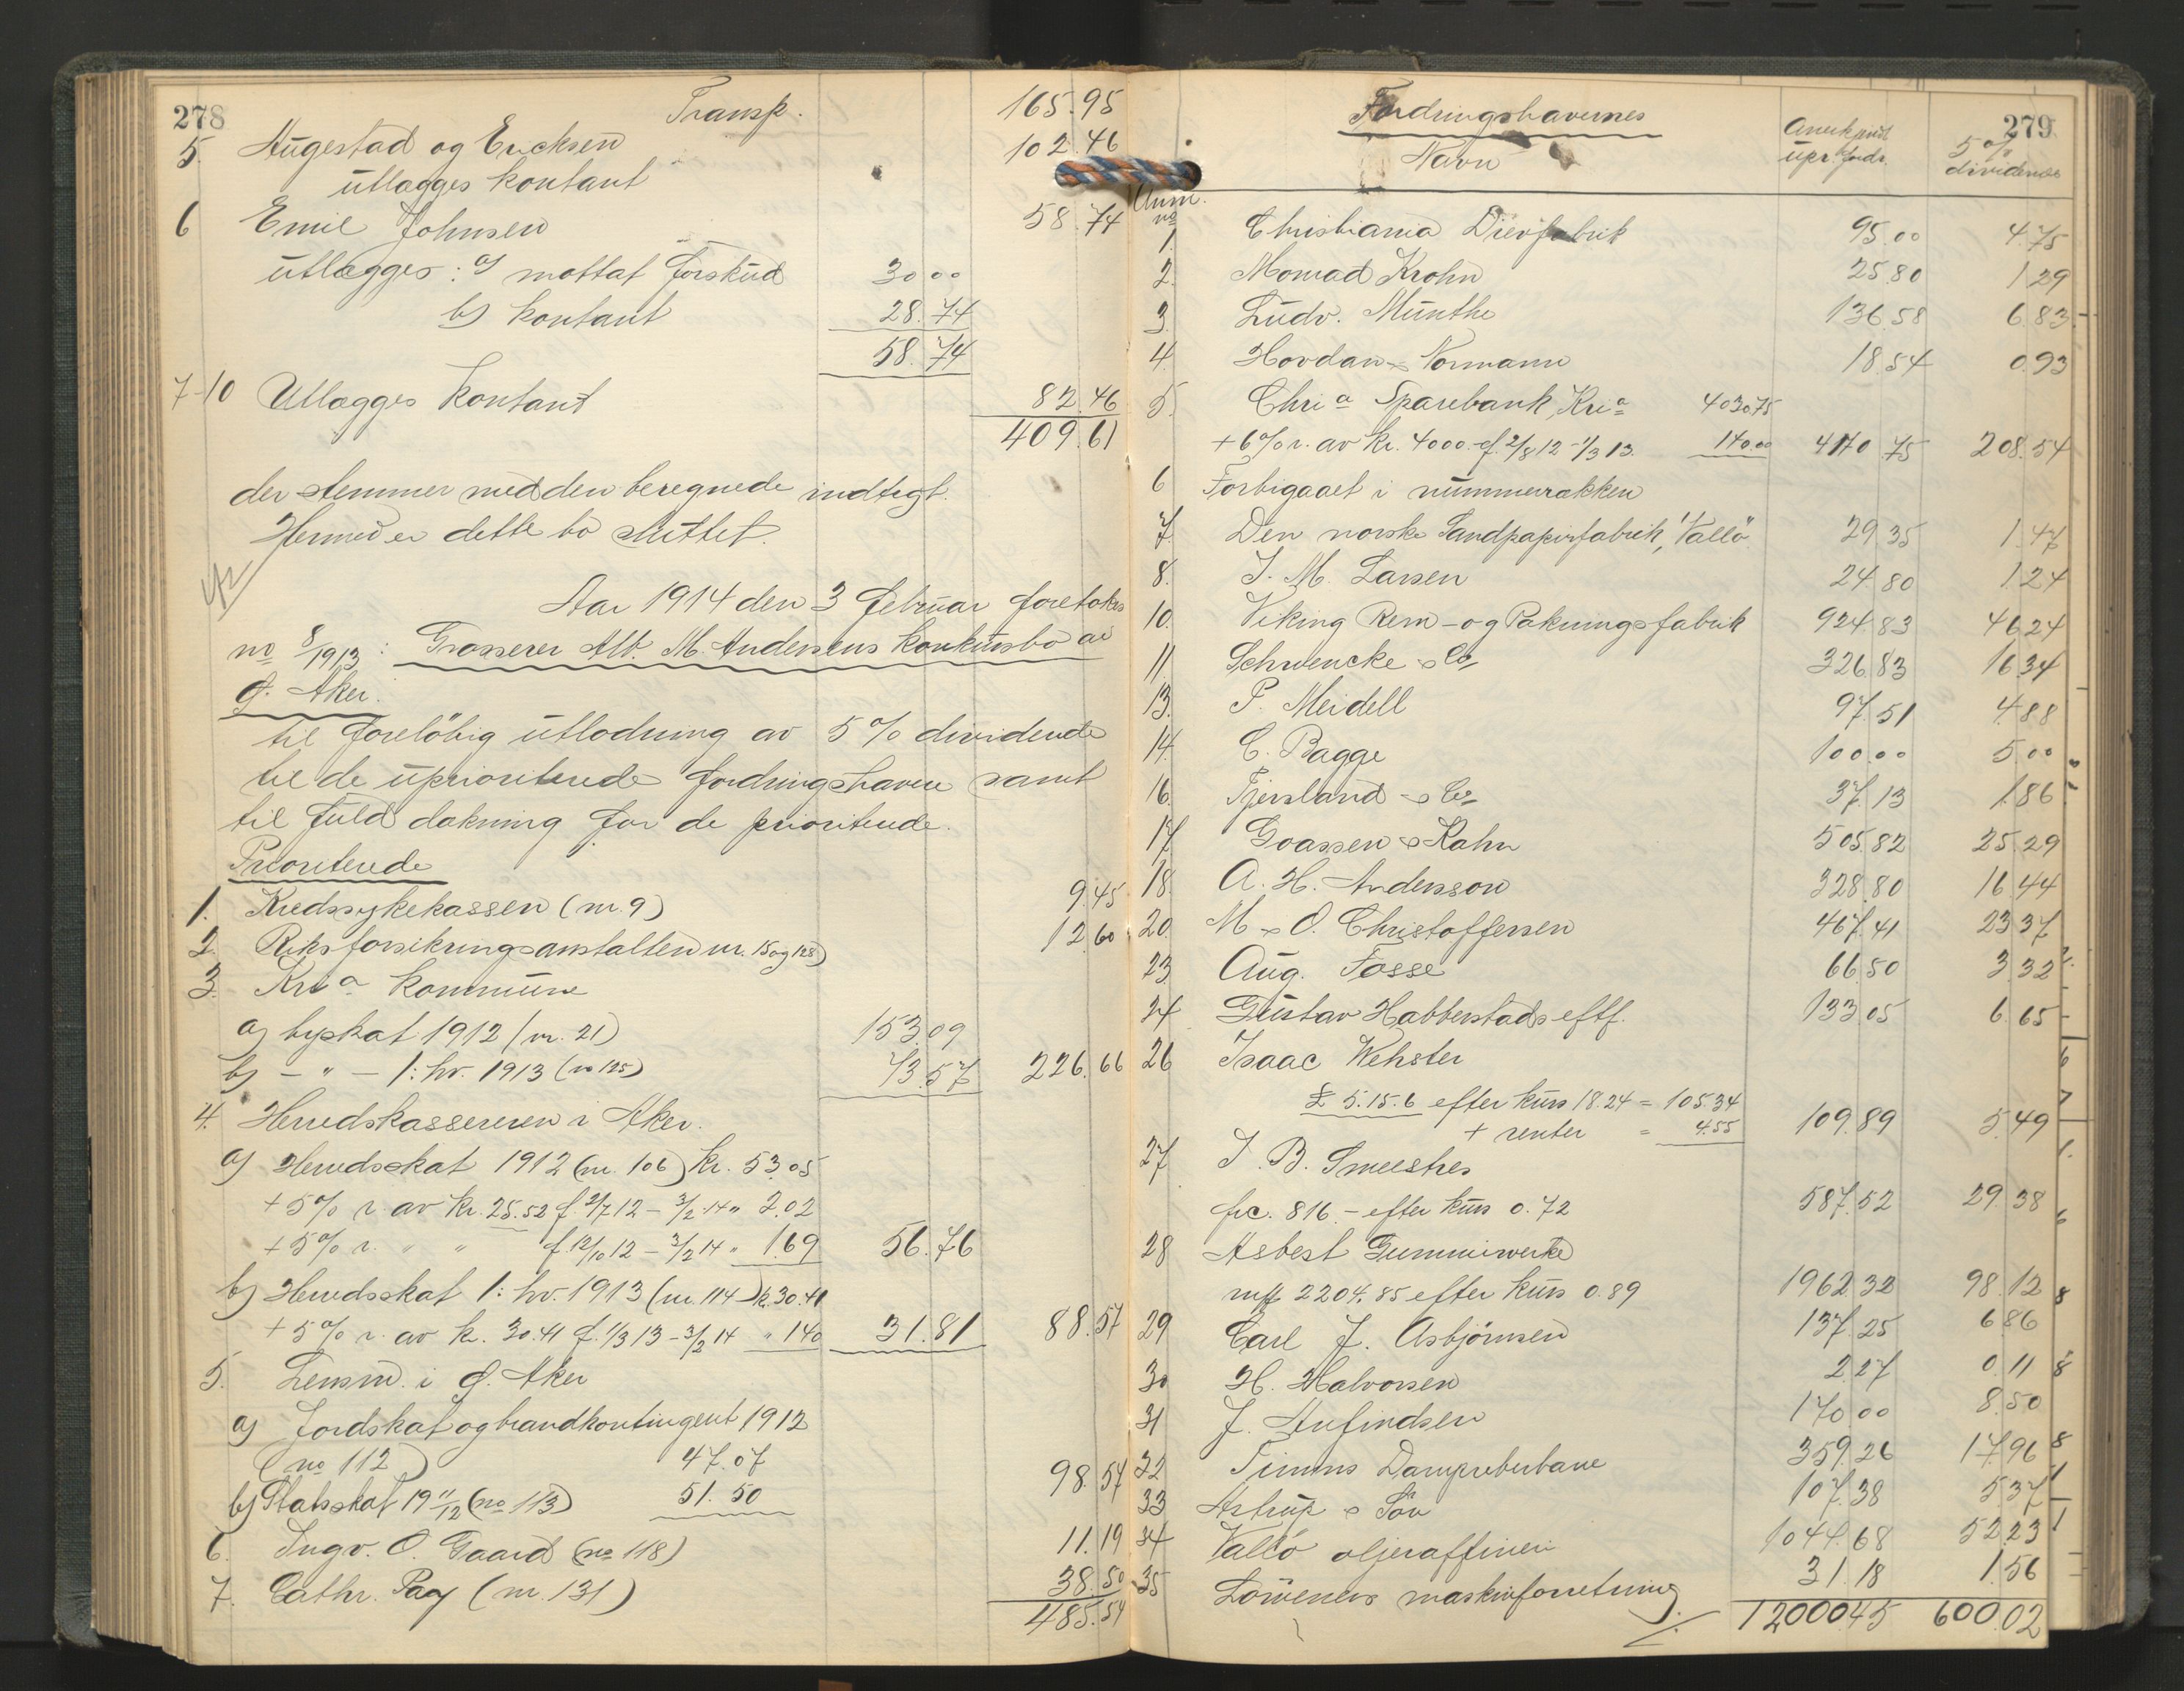 278
Transp. 165.95
5. Augestad og Ericksen 102.46
utlægges kontant
6 Emil Johnsen 58.74
utlægges: a) mottat forskud 30 00
b) kontant 28.74
58.74
7-10 Utlægges kontant 82.46
409.61
der stemmer med den beregnede indtægt.
Hermed er dette bo sluttet.
Aar 1914 den 3 februar foretokes
no 8/1913: Grosserer Alb. M. Andersens konkursbo av
ø. Aker.
til foreløbig utlodning av 5% dividende
til de uprioriterede fordringshavere samt
til fuld dækning for de prioriterede.
Prioriterede
1. Kredssykekassen (nr. 9) 9.45
2. Riksforsikringsanstalten nr. 15 og 128) 12.60
3. Kria kommune
a) byskat 1912 (nr. 21) 153.09
b) - " - 1: hv. 1913 (no 125) 73.57 226.66
4. Herredskassereren i Aker.
a) Herredsskat 1912 (nr. 106) kr. 53.05
+ 5% r. av kr. 25.52 f. 2/7 12 - 3/2 14 " 2.02
+ 5% r. " " f. 12/10 12 - 3/2 14 " 1.69 56.76
b) Herredsskat 1: hv. 1913 (nr. 114) k. 30.41
+ 5% r. av k. 30.41 f. 1/3 13 - 3/2 14 " 1.40 31.81 88.57
5. Lensm. i ø. Aker
a) Jordskat og brandkontingent 1912
(no 112) 47.07
b) Statsskat 19 11/12 (no 113) 51.50 98.57
6. Ingv. O. Gaard (no 118) 11.19
7. Cathr. Pay (nr. 131) 38.50
485.54
279
Fordringshavernes Navn
Anerkjendt upr. fordr.
5% dividende
Anm. no
1. Christiania Drevfabrik 95.00 4.75
2. Monrad Krohn 25.80 1.29
3. Ludv. Munthe 136.58 6.83
4. Hovdan & Normann 18.54 0.93
5. Chria Sparebank, Kria 4030.75
+ 6% r. av kr. 4000 - f. 2/8 12 - 1/3 13. 140.00 4170.75 208.54
6 Forbigaaet i nummerrækken
7. Den norske Sandpapirfabrik, Vallö 29.35 1.47
8. J. M. Larsen 24.80 1.24
10. Viking Rem- og Pakningsfabrik 924.83 46.24
11. Schwencke & Co 326.83 16.34
13. P. Meidell 97.51 4.88
14. C. Bagge 100.00 5.00
16. Fjersland & Co 37.13 1.86
17 Goassen & Kahn 505.82 25.29
18. A. H. Andersson 328.80 16.44
20. M & O. Christoffersen 467.41 23.37
23 Aug. Fosse 66.50 3.32
24 Gustav Habberstads eftf. 133.05 6.65
26 Isaac Wehster
£ 5.15.6 efter kurs 18.24 = 105.34
+ renter = 4.55 109.89 5.49
27 J. B. Smeestres
frc. 816.- efter kurs 0.72 587.52 29.38
28 Asbest Gummiwerke
mk 2204.85 efter kurs 0.89 1962.32 98.12
29 Carl J. Asbjörnsen 137.25 6.86
30 H. Halvorsen 2.27 0.11
31 J. Anfindsen 170.00 8.50
32 Timms Dampreberbane 359.26 17.96
33 Astrup & Sön 107.38 5.37
34 Vallö oljeraffineri 1044.68 52.23
35 Löweners maskinforretning 31.18 1.56
12000.45 600.02